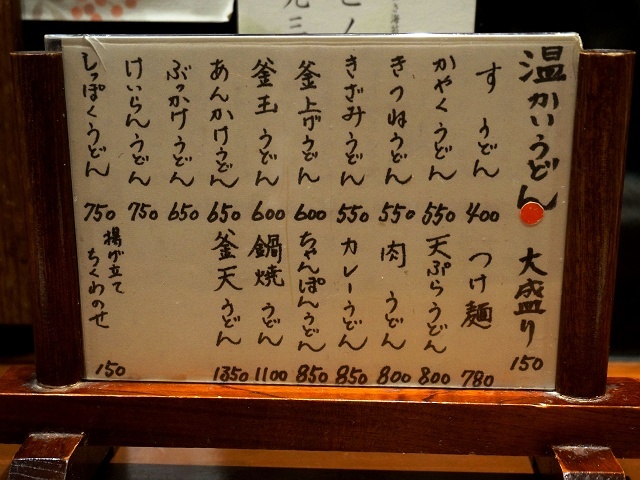 温かいうどん
大盛り
150
すうどん
400
かやくうどん
550
きつねうどん
550
きざみうどん
550
釜上げうどん
600
釜玉うどん
600
あんかけうどん
650
ぶっかけうどん
650
けいらんうどん
750
しっぽくうどん
750
つけ麺
780
天ぷらうどん
800
肉うどん
800
カレーうどん
850
ちゃんぽんうどん
850
鍋焼うどん
1100
釜天うどん
1350
揚げ立て
ちくわのせ
150